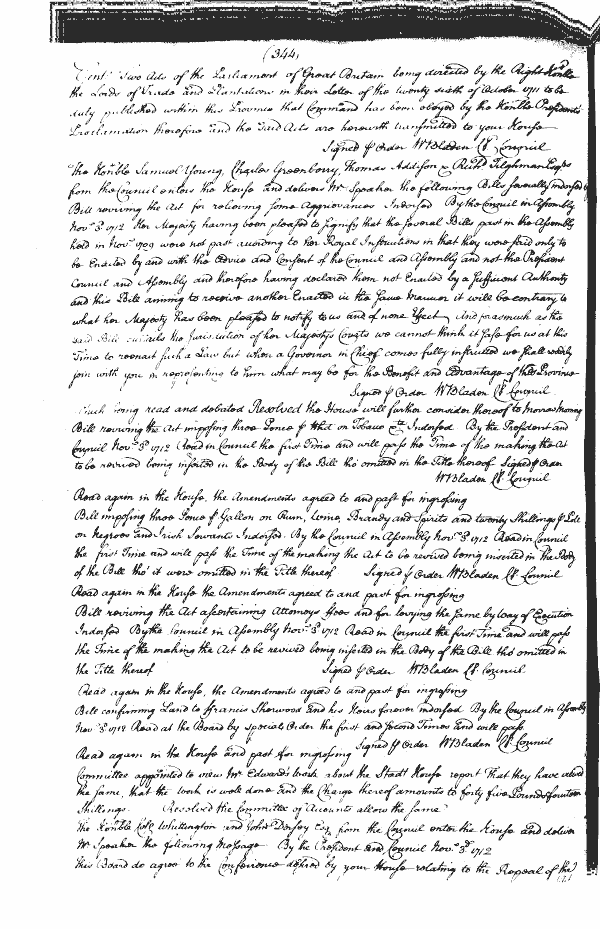 (344)
Gent. Two Acts of the Parliament of Great Britain being directed by the Right Honble
the Lords of Trade and Plantations in their Letter of the twenty sixth of October 1711 to be
duly published within this Province that Command has been obeyed by the Honble Presidents
Proclamation therefore and the said Acts are herewith transmitted to your House
Signed p Order WBladen Cl Council
The Honble Samuel Young, Charles Greenberry, Thomas Addison & Richd Tilghman Esqrs
from the Council enters the House and delivers Mr Speaker the following Bills severally indorsed
Bill reviving the Act for relieving some Aggrievances Indorsed By the Council in Assembly
Novr 3d 1712 Her Majesty having been pleased to signify that the several Bills past in the Assembly
held in Novr 1709 were not past according to her Royal Instructions in that they were said only to
be Enacted by and with the advice and Consent of the Council and Assembly and not the President
Council and Assembly and therefore having declared them not Enacted by a sufficient Authority
and this Bill aiming to receive another Enacted in the same Manner it will be contrary to
what her Majesty has been pleased to notify to us and of none Effect And forasmuch as the
said Bill the Jurisdiction of her Majestys Courts we cannot think it safe for us at this
Time to reenact such a Law but when a Governor in Chief comes fully instructed we shall readily
join with you in representing to him what may be for the Benefit and Advantage of the Province
Signed p Order WBladen Cl Council
Which being read and debated Resolved the House will further consider thereof to Morrow Morning
Bill reviving the Act imposing three Pence p Hhd on Tobacco &ca Indorsed By the President and
Council Novr 3d 1712 Read in Council the first Time and will pass the Time of the making the Act
to be revived being inserted in the Body of the Bill tho' omitted in the Title thereof Signed p Order
WBladen Cl Council
Read again in the House, the Amendments agreed to and past for ingrossing
Bill imposing three Pence p Gallon on Rum, Wine, Brandy and Spirits and twenty Shillings p Poll
on Negroes and Irish Servants Indorsed. By the Council in Assembly Novr 3d 1712 Read in Council
the first Time and will pass the Time of the making the Act to be revived being inserted in the Body
of the Bill tho' it were omitted in the Title thereof Signed p Order WBladen Cl Council
Read again in the House the Amendments agreed to and past for ingrossing
Bill reviving the Act ascertaining Attorneys Fees and for levying the same by Way of Execution
Indorsed By the Council in Assembly Novr 3d 1712 Read in Council the first Time and will pass
the Time of the making the Act to be revived being inserted in the Body of the Bill tho' omitted in
the Title thereof Signed p Order WBladen Cl Council
Read again in the House, the Amendments agreed to and past for ingrossing
Bill confirming Land to Francis Sherwood and his Heirs forever indorsed By the Council in Assembly
Novr 3d 1712 Read at the Board by special Order the first and second Times and will pass
Signed p Order WBladen Cl Council
Read again in the House and past for ingrossing
Committee appointed to view Mr Edwards Work about the Stadt House report That they have viewed
the same, that the work is well done and the Charge thereof amounts to forty five Pounds fourteen
Shillings. Resolved the Committee of Accounts allow the same
The Honble Colo Whittington and John Dorsey Esqr from the Council enter the House and deliver
Mr Speaker the following Message By the President and Council Novr 3d 1712
This Board do agree to the Conference desired by your House relating to the Repeal of the